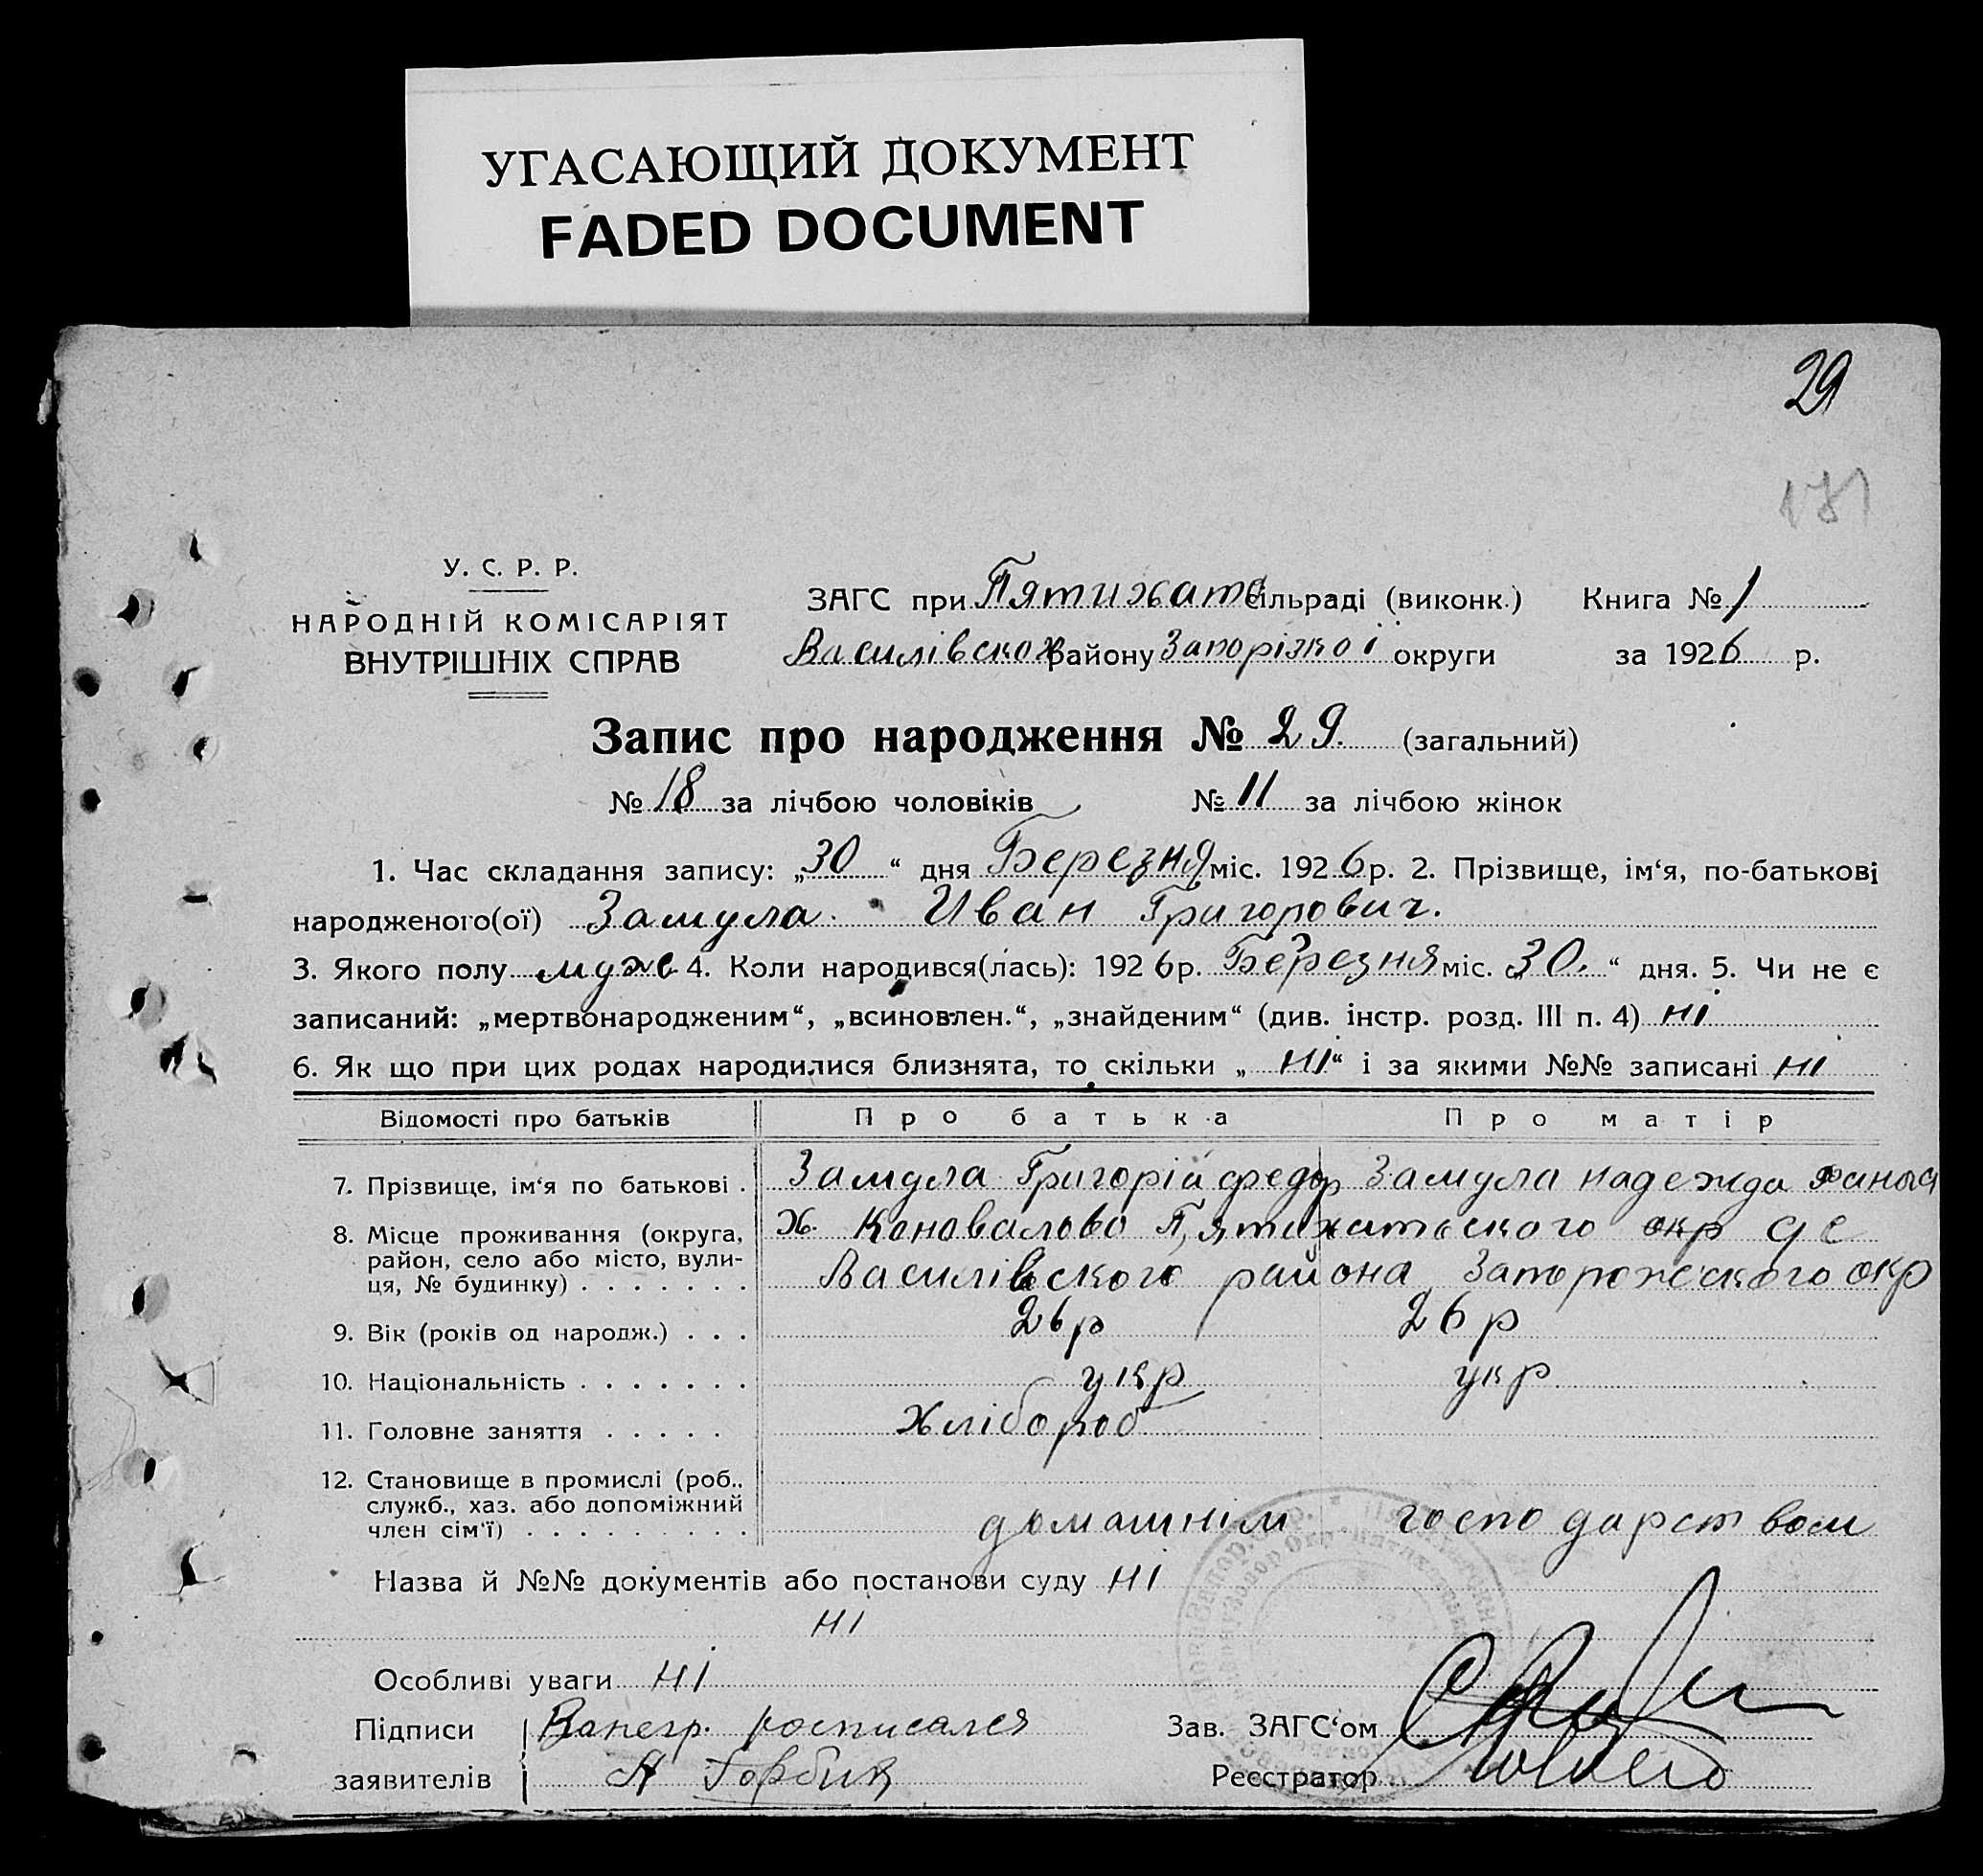 УГАСАЮЩИЙ ДОКУМЕНТ
FADED DOCUMENT
29
171
У. С. Р. Р.
НАРОДНІЙ КОМІСАРІЯТ
ВНУТРІШНІХ СПРАВ
ЗАГС при Пятихатс сільраді (виконк.) Книга № 1
Василівской району Запорізкої округи за 1926 р.
Запис про народження № 29. (загальний)
№ 18 за лічбою чоловіків № 11 за лічбою жінок
1. Час складання запису: „30“ дня Березня міс. 1926 р. 2. Прізвище, ім‘я, по-батькові
народженого(ої) Замула Иван Григорович.
3. Якого полу муже 4. Коли народився(лась): 1926 р. Березня міс. „30.“ дня. 5. Чи не є
записаний: „мертвонародженим“, „всиновлен.“, „знайденим“ (див. інстр. розд. III п. 4) ні
6. Як що при цих родах народилися близнята, то скільки „ні“ і за якими №№ записані ні
Відомості про батьків Про батька Про матір
7. Прізвище, ім‘я по батькові . Замула Григорій федор Замула надежда
8. Місце проживання (округа, х. Коновалово Пятихатського окр
район, село або місто, вули-
ця, № будинку) . . . . . . . Василівского района Запорожского окр
9. Вік (років од народж.) . . . 26 р 26 р
10. Національність . . . . . . . укр укр
11. Головне заняття . . . . . хлібороб
12. Становище в промислі (роб.,
служб., хаз. або допоміжний
член сім‘ї) . . . . . . . . . домашнім господарством
Назва й №№ документів або постанови суду ні
ні
Особливі уваги ні
Підписи росписался Зав. ЗАГС‘ом
заявителів А Горбик Реєстратор